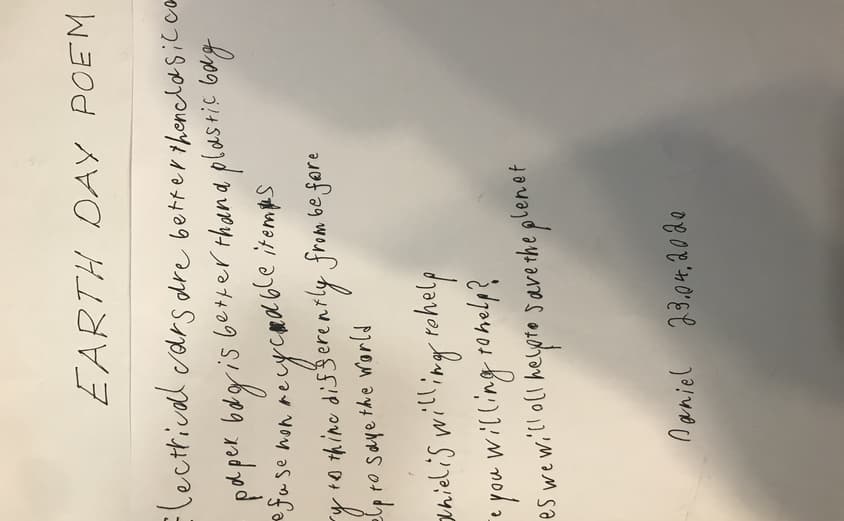 EARTH DAY POEM
Electrical cars are better then clasic ca
paper bag is better than a plastic bag
efuse non recycable itemps
ry to thinc differently from before
elp to save the World
anhiel is willing to help
e you willing to help?
es we will all help to save the plenet
Daniel 23.04.2020